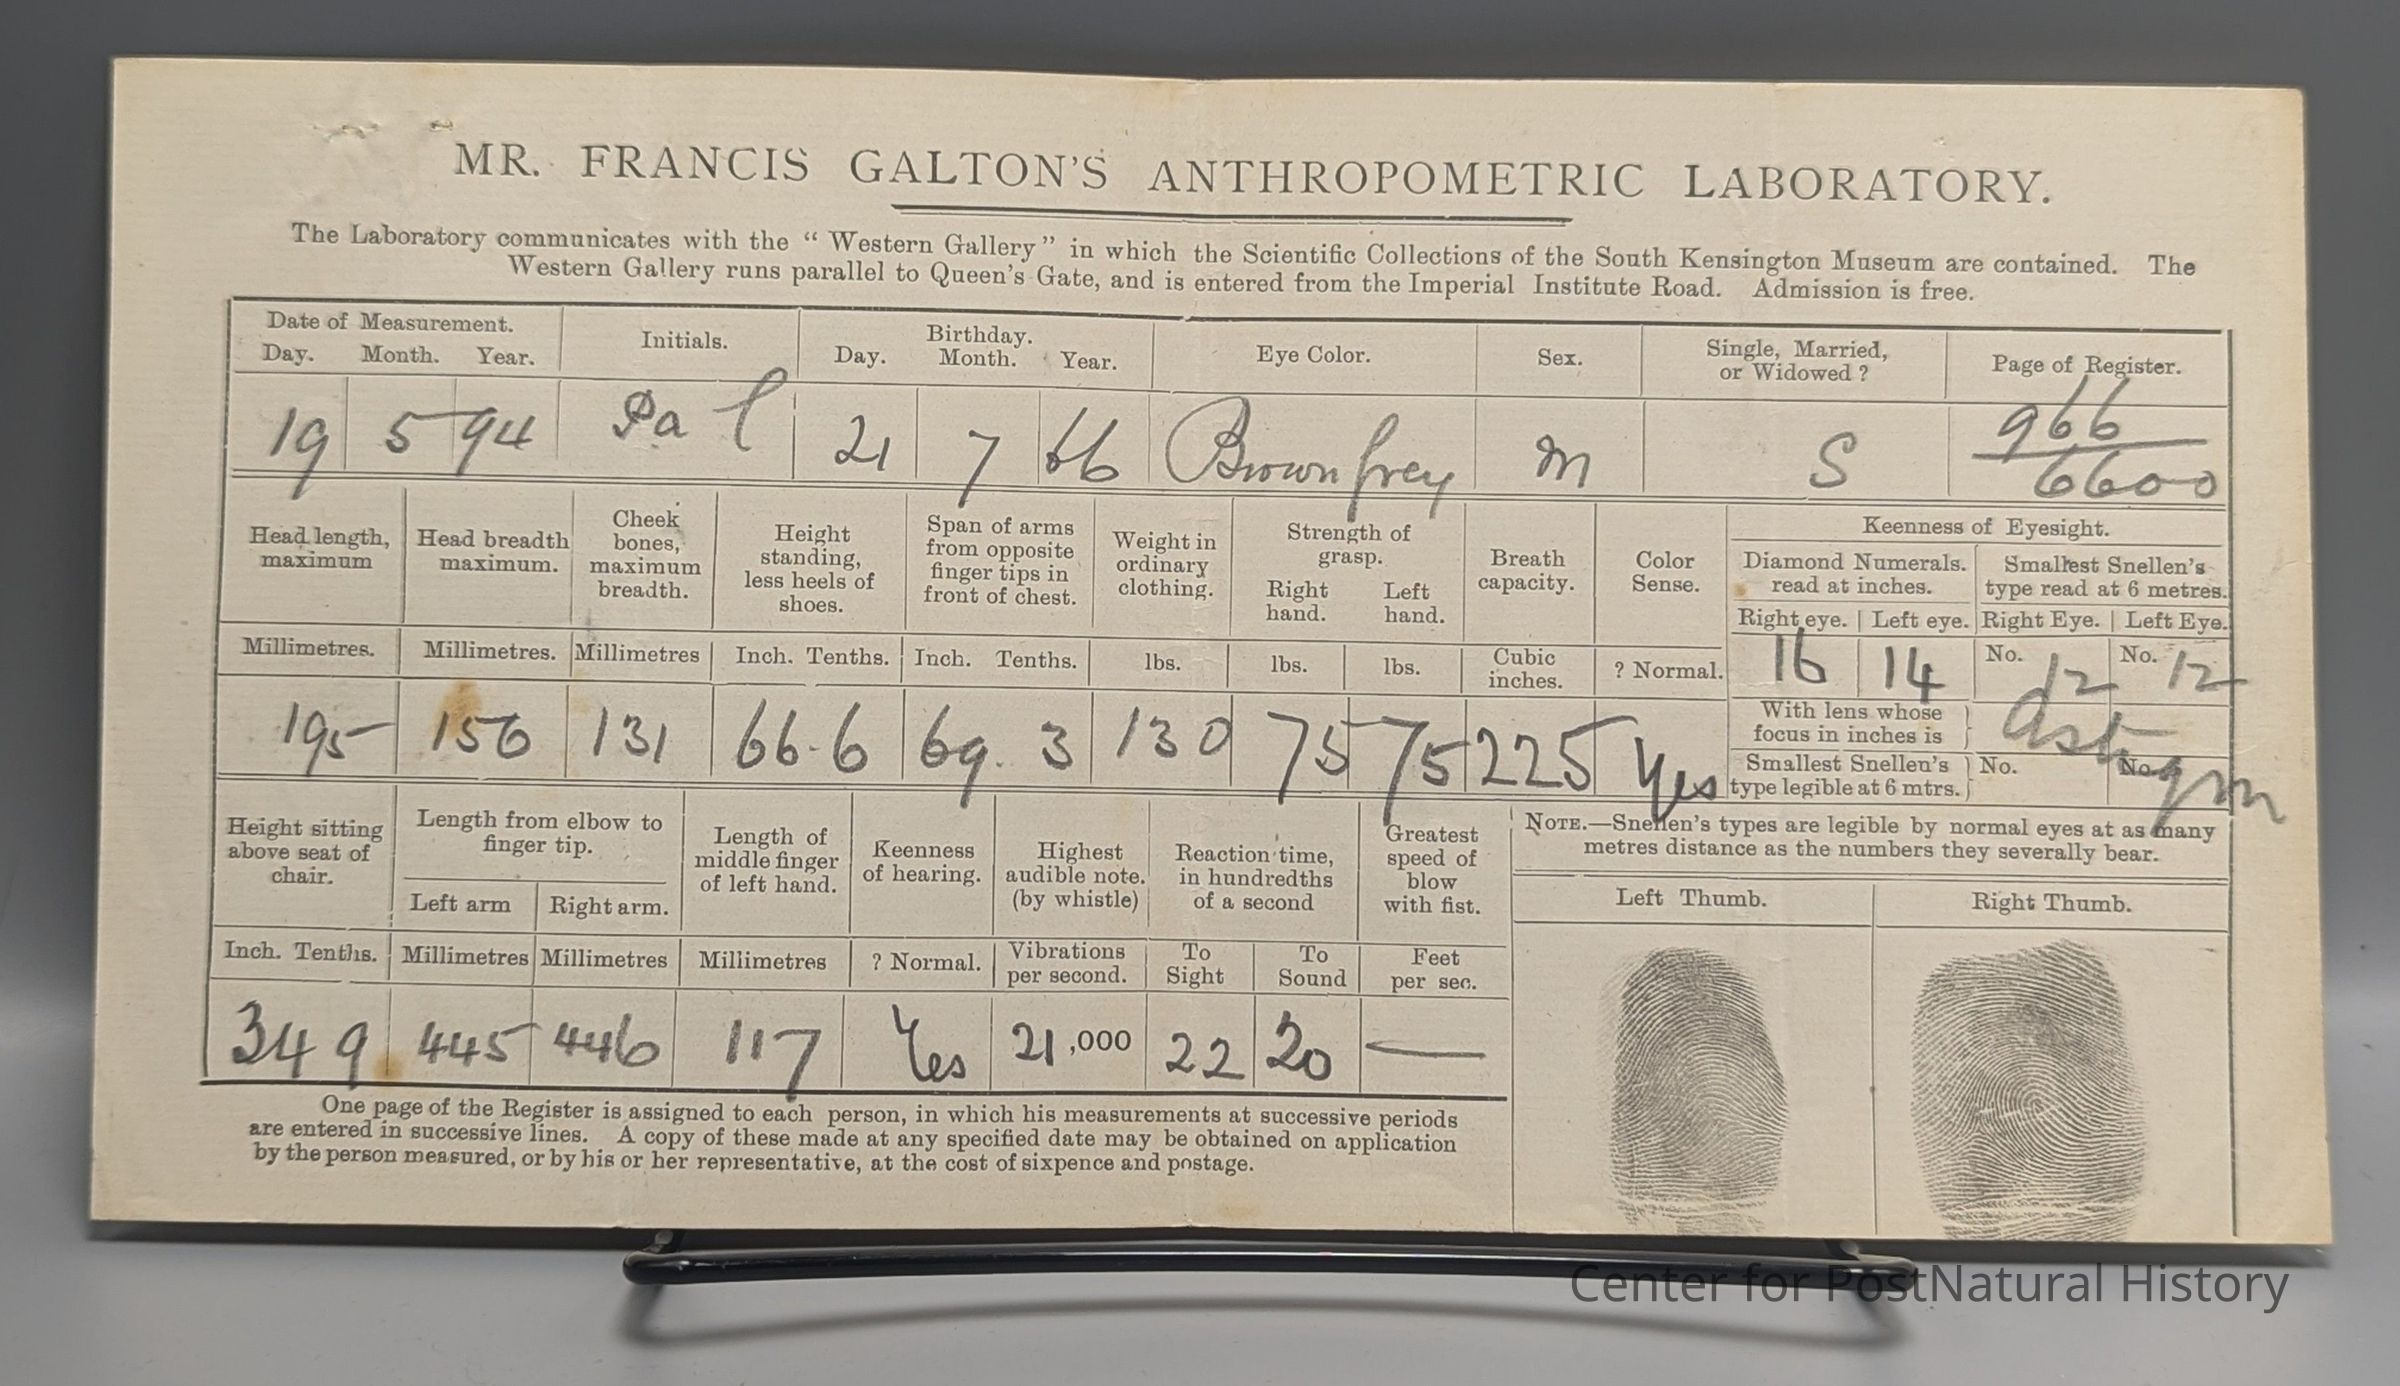 MR. FRANCIS GALTON'S ANTHROPOMETRIC LABORATORY.
The Laboratory communicates with the “ Western Gallery ” in which the Scientific Collections of the South Kensington Museum are contained. The
Western Gallery runs parallel to Queen's Gate, and is entered from the Imperial Institute Road. Admission is free.
Date of Measurement. Initials. Birthday. Eye Color. Sex. Single, Married, or Widowed ? Page of Register.
Day. Month. Year. Day. Month. Year.
19 5 94 Pa l 21 7 66 Brown grey m S 966
6600
Head length, maximum Head breadth maximum. Cheek bones, maximum breadth. Height standing, less heels of shoes. Span of arms from opposite finger tips in front of chest. Weight in ordinary clothing. Strength of grasp. Breath capacity. Color Sense. Keenness of Eyesight.
Right hand. Left hand. Diamond Numerals. read at inches. Smallest Snellen's type read at 6 metres.
Right eye. Left eye. Right Eye. Left Eye.
Millimetres. Millimetres. Millimetres Inch. Tenths. Inch. Tenths. lbs. lbs. lbs. Cubic inches. ? Normal. 16 14 No. 12 No. 12
195 156 131 66.6 69.3 130 75 75 225 Yes
With lens whose focus in inches is
Smallest Snellen's type legible at 6 mtrs. No. No.
Height sitting above seat of chair. Length from elbow to finger tip. Length of middle finger of left hand. Keenness of hearing. Highest audible note. (by whistle) Reaction time, in hundredths of a second Greatest speed of blow with fist.
Left arm Right arm.
Inch. Tenths. Millimetres Millimetres Millimetres ? Normal. Vibrations per second. To Sight To Sound Feet per sec.
34 9 445 446 117 Yes 21,000 22 20 —
NOTE.—Snellen's types are legible by normal eyes at as many
metres distance as the numbers they severally bear.
Left Thumb. Right Thumb.
One page of the Register is assigned to each person, in which his measurements at successive periods
are entered in successive lines. A copy of these made at any specified date may be obtained on application
by the person measured, or by his or her representative, at the cost of sixpence and postage.
Center for PostNatural History